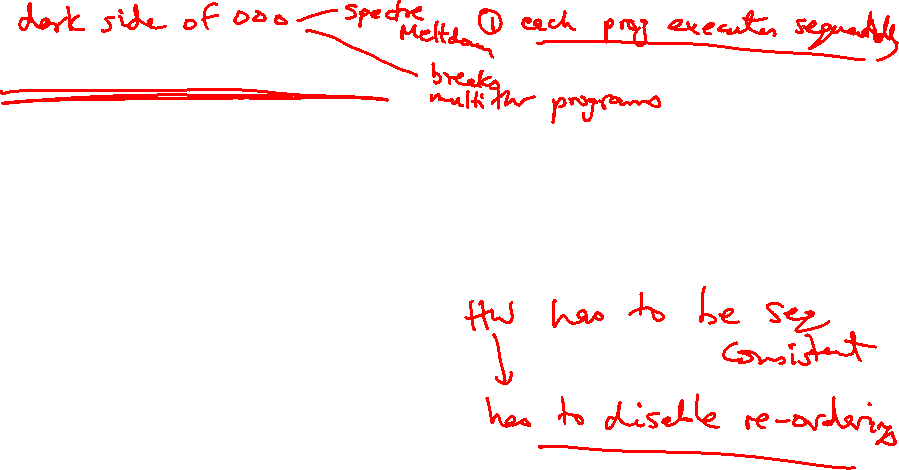 dark side of OOO
spectre
Meltdown
breaks
multi thr programs
① each prog executes sequentially
HW has to be seq
consistent
has to disable re-ordering